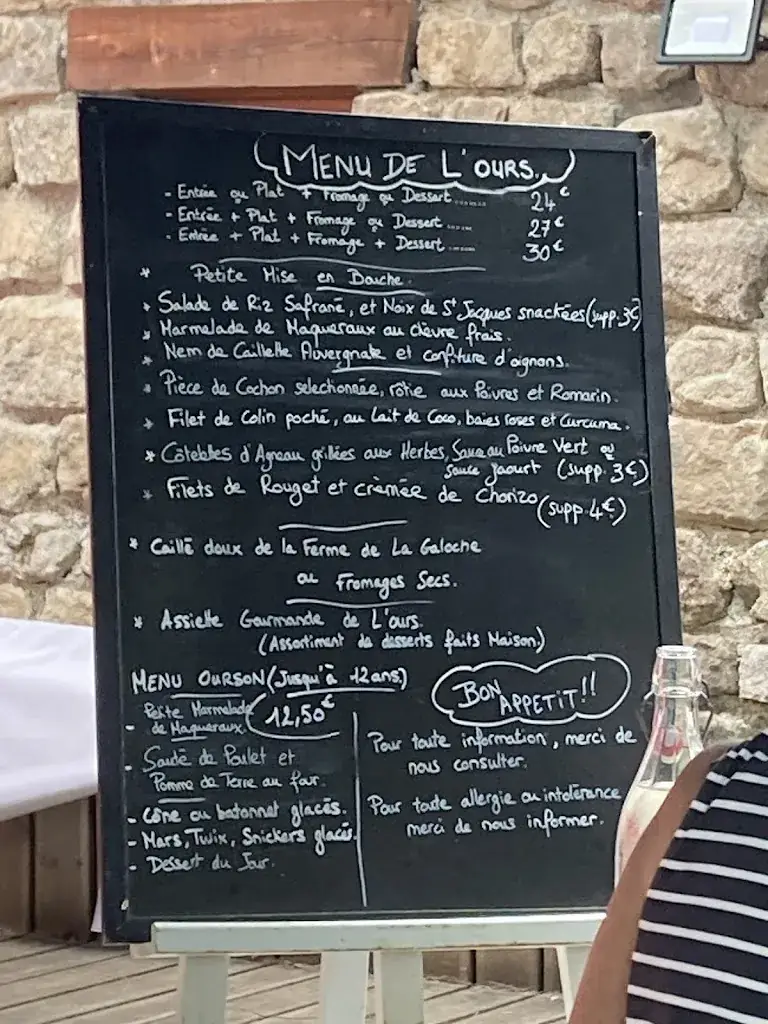 MENU DE L'OURS.
- Entrée ou Plat + Fromage ou Dessert ...... 24€
- Entrée + Plat + Fromage ou Dessert ..... 27€
- Entrée + Plat + Fromage + Dessert ..... 30€
* Petite Mise en Bouche.
* Salade de Riz Safrané, et Noix de St Jacques snackées (supp. 3€)
* Marmelade de Maqueraux au chèvre frais.
* Nem de Caillette Auvergnate et confiture d'oignons.
* Pièce de Cochon selectionnée, rôtie aux Poivres et Romarin.
* Filet de Colin poché, au Lait de Coco, baies roses et Curcuma.
* Côtelettes d'Agneau grillées aux Herbes, Sauce au Poivre Vert ou
sauce yaourt (supp. 3€)
* Filets de Rouget et crèmée de chorizo (supp. 4€)
* Caillé doux de la Ferme de La Galoche
ou Fromages Secs.
* Assiette Gourmande de L'ours.
(Assortiment de desserts faits Maison)
MENU OURSON (Jusqu'à 12 ans)
12,50€
- Petite Marmelade
de Maqueraux
- Sauté de Poulet et
Pomme de Terre au four.
- Cône ou batonnet glacés.
- Mars, Twix, Snickers glacés.
- Dessert du Jour.
BON APPETIT!!
Pour toute information, merci de
nous consulter.
Pour toute allergie ou intolérance
merci de nous informer.